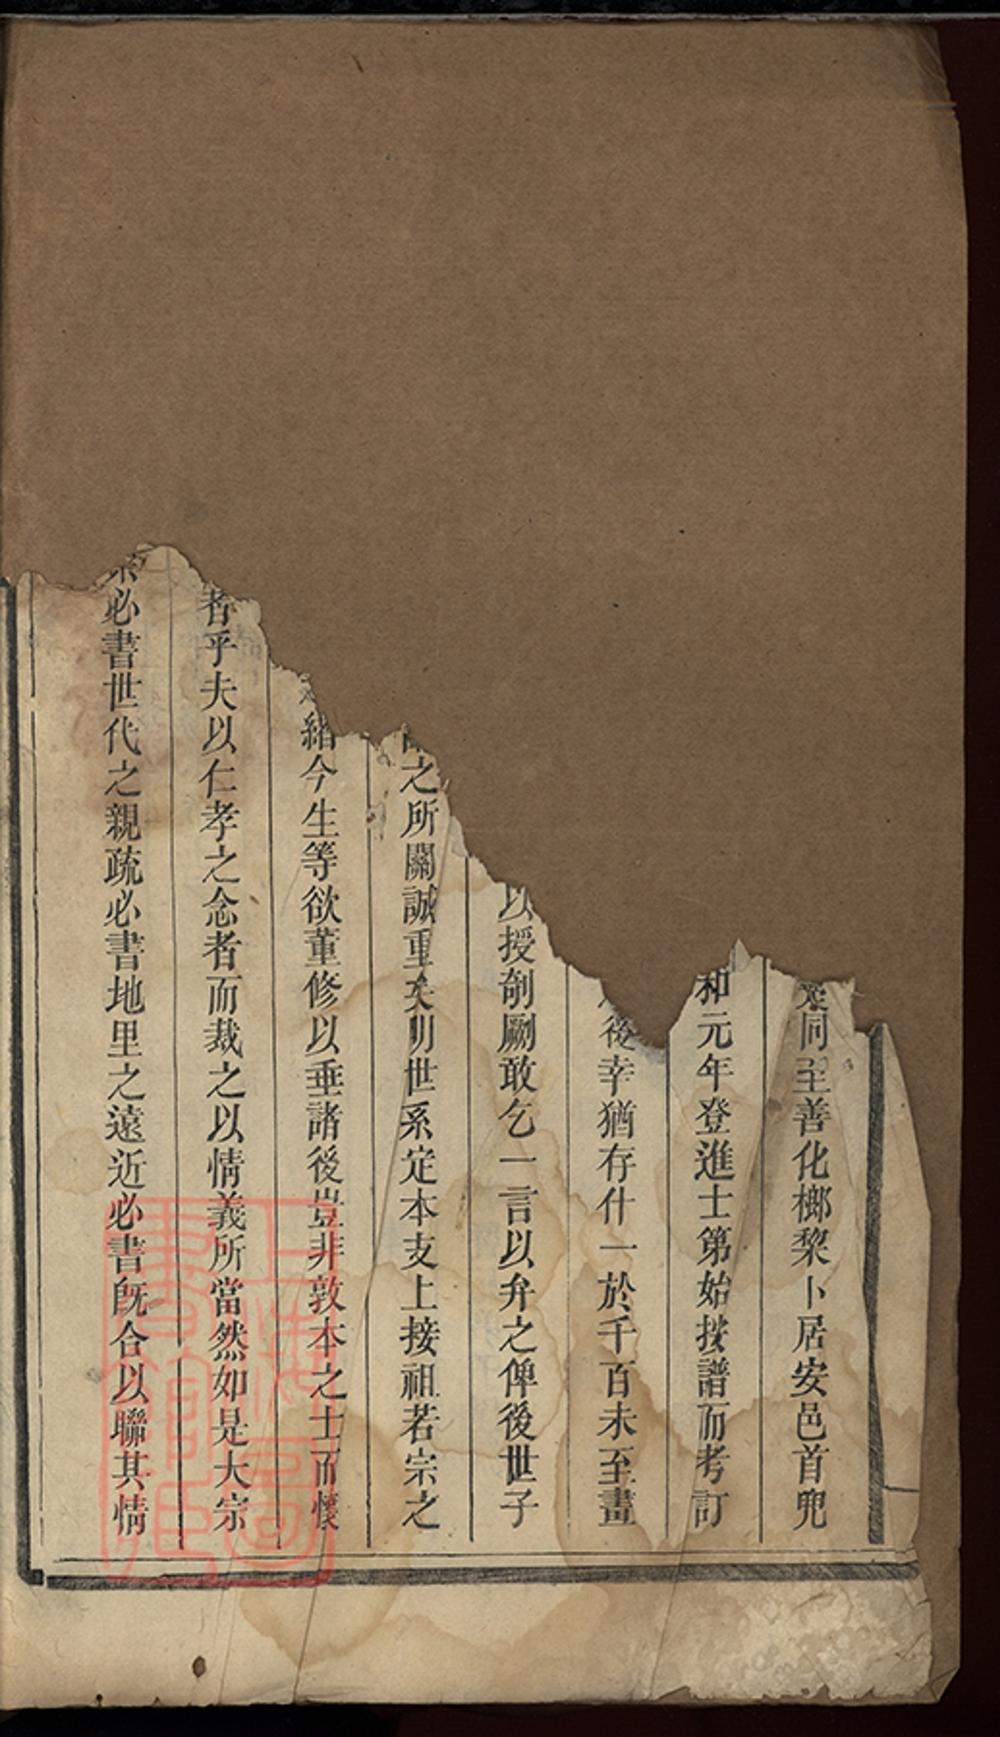 同至善化榔棃卜居安邑首兜
和元年登進士第始按譜而考訂
後幸猶存什一於千百未至盡
以授剞劂敢乞一言以弁之俾後世子
之所關誠重矣明世系定本支上接祖若宗之
緒今生等欲董修以垂諸後豈非敦本之士而懷
者乎夫以仁孝之念者而裁之以情義所當然如是大宗
必書世代之親疏必書地里之遠近必書旣合以聯其情
上海圖書館藏